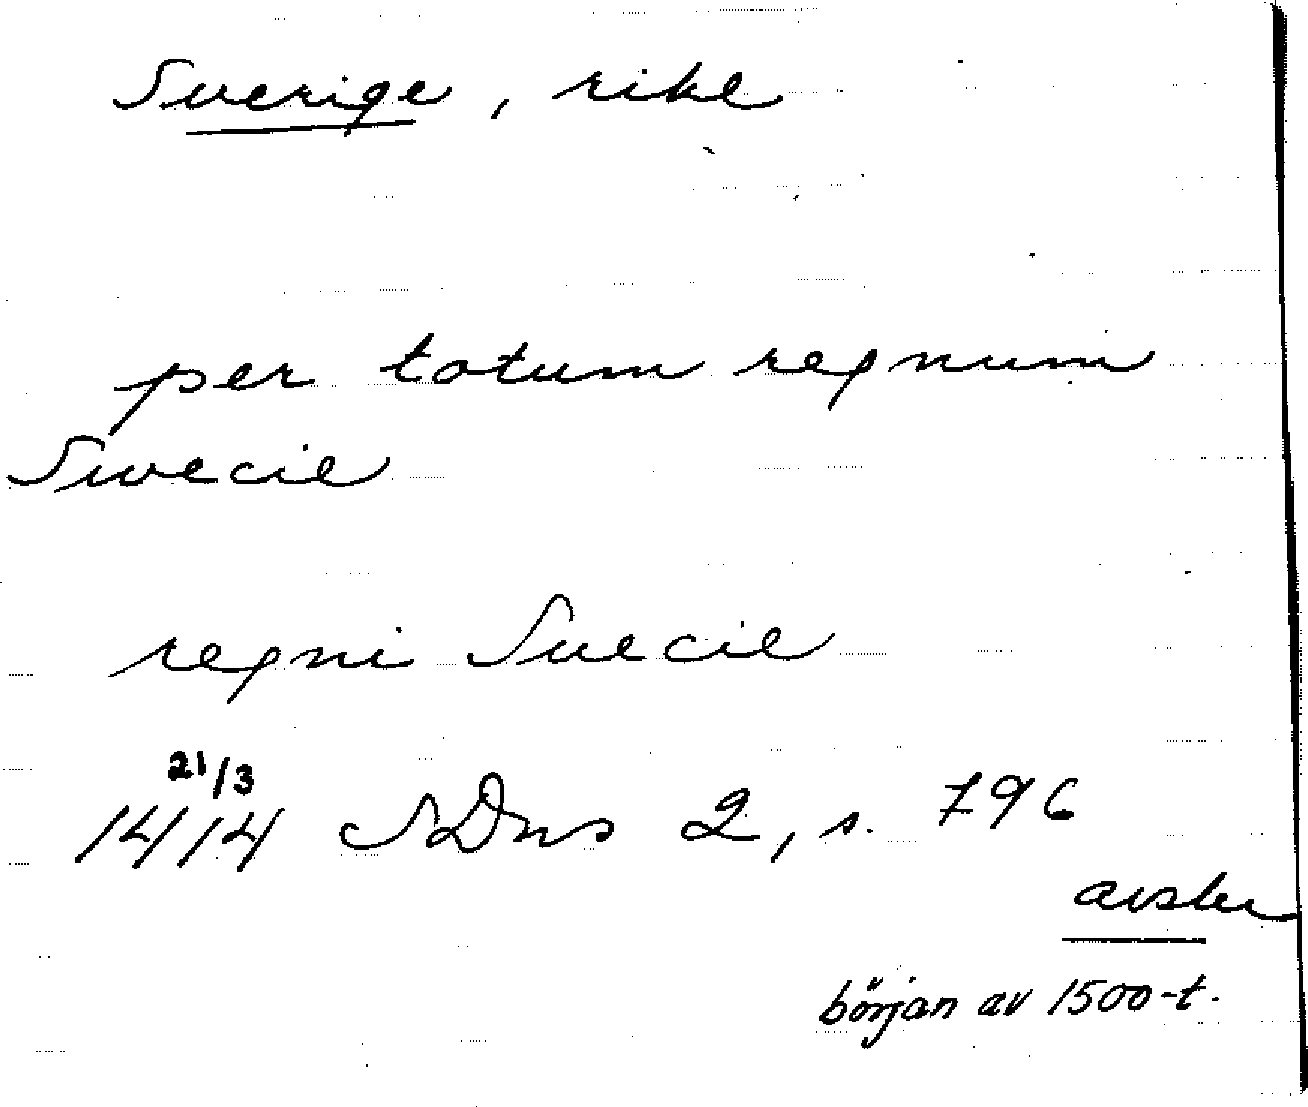 Sverige, rike
per totum regnum
Swecie
regni Suecie
21/3
1414 SDns 2, s. 796
avskr
början av 1500-t.